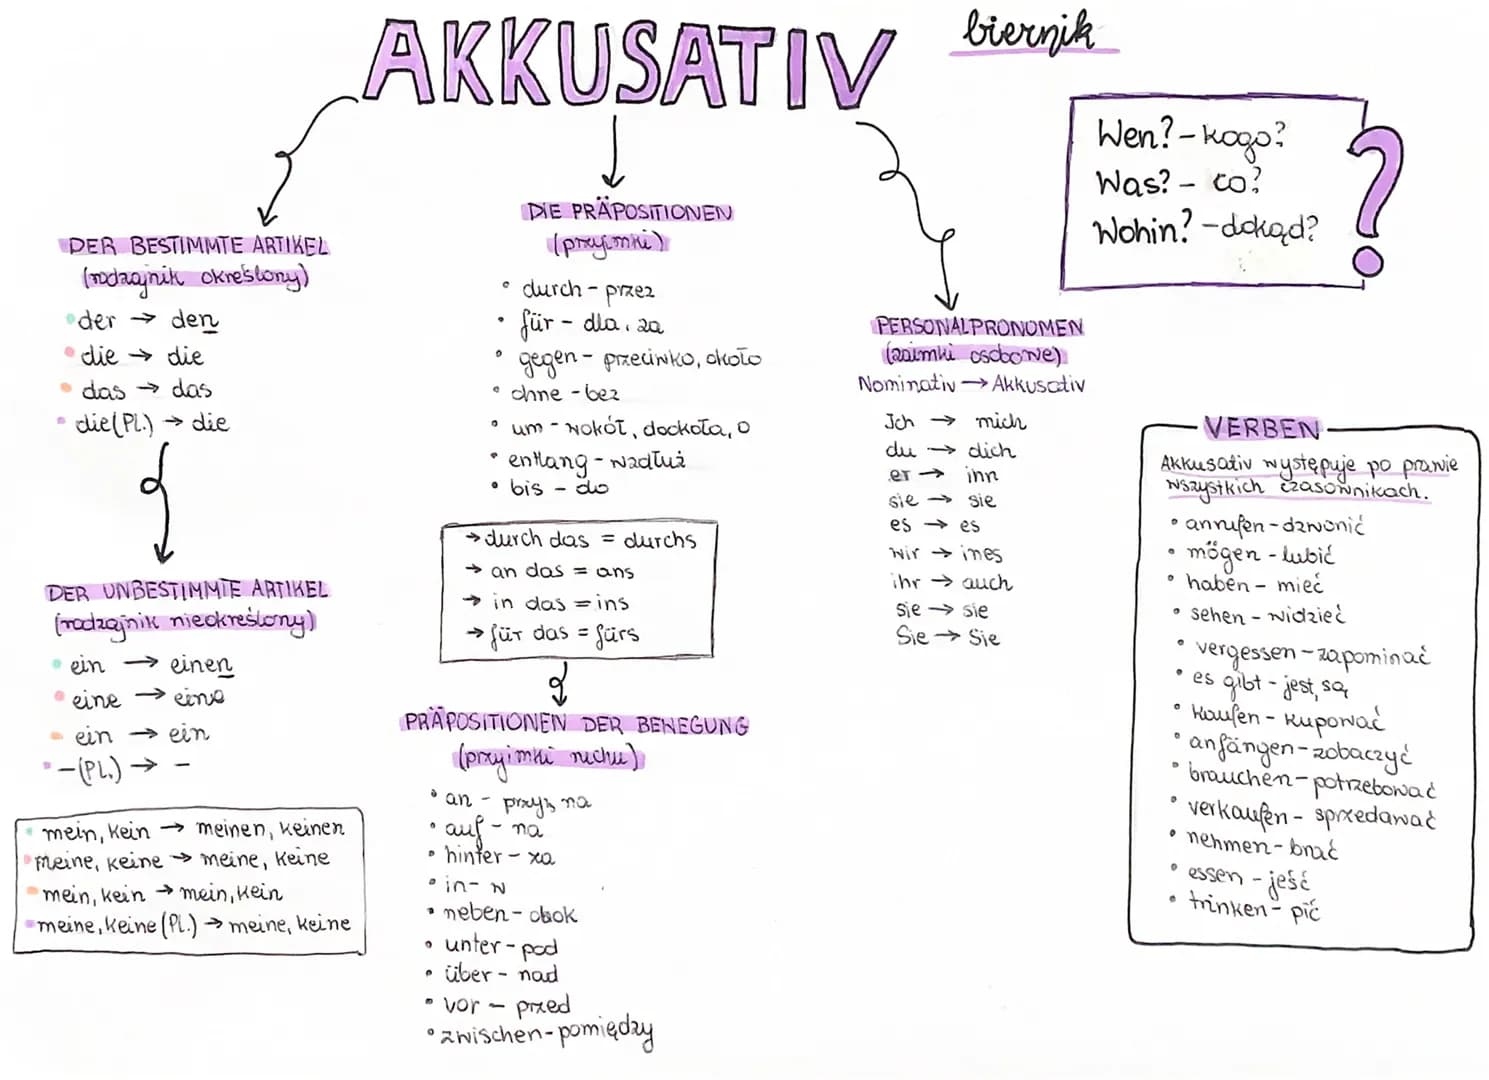 AKKUSATIV
biernik
Wen? – kogo?
Was? – co?
Wohin? – dokąd?
DER BESTIMMTE ARTIKEL
(rodzajnik określony)
der → den
die → die
das → das
die (Pl.) → die
DER UNBESTIMMTE ARTIKEL
(rodzajnik nieokreślony)
ein → einen
eine → eine
ein → ein
– (PL.) → –
mein, kein → meinen, keinen
meine, keine → meine, keine
mein, kein → mein, kein
meine, keine (PL.) → meine, keine
DIE PRÄPOSITIONEN
(przyimki)
• durch – przez
• für – dla, za
• gegen – przeciwko, około
• ohne – bez
• um – wokół, dookoła, o
• entlang – wzdłuż
• bis – do
→ durch das = durchs
→ an das = ans
→ in das = ins
→ für das = fürs
PRÄPOSITIONEN DER BEWEGUNG
(przyimki ruchu)
• an – przy, na
• auf – na
• hinter – za
• in – w
• neben – obok
• unter – pod
• über – nad
• vor – przed
• zwischen – pomiędzy
PERSONALPRONOMEN
(zaimki osobowe)
Nominativ → Akkusativ
Ich → mich
du → dich
er → inn
sie → sie
es → es
wir → ines
ihr → auch
sie → sie
Sie → Sie
VERBEN
Akkusativ występuje po prawie
wszystkich czasownikach.
• anrufen – dzwonić
• mögen – lubić
• haben – mieć
• sehen – widzieć
• vergessen – zapominać
• es gibt – jest, są
• kaufen – kupować
• anfängen – zobaczyć
• brauchen – potrzebować
• verkaufen – sprzedawać
• nehmen – brać
• essen – jeść
• trinken – pić